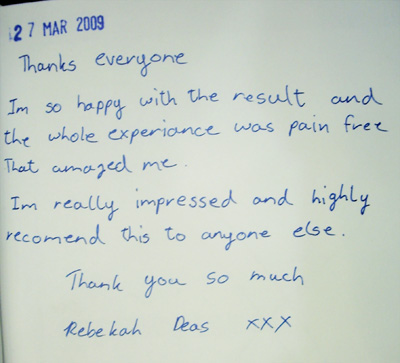 27 MAR 2009
Thanks everyone
Im so happy with the result and
the whole experiance was pain free
That amazed me.
Im really impressed and highly
recomend this to anyone else.
Thank you so much
Rebekah Deas xxx